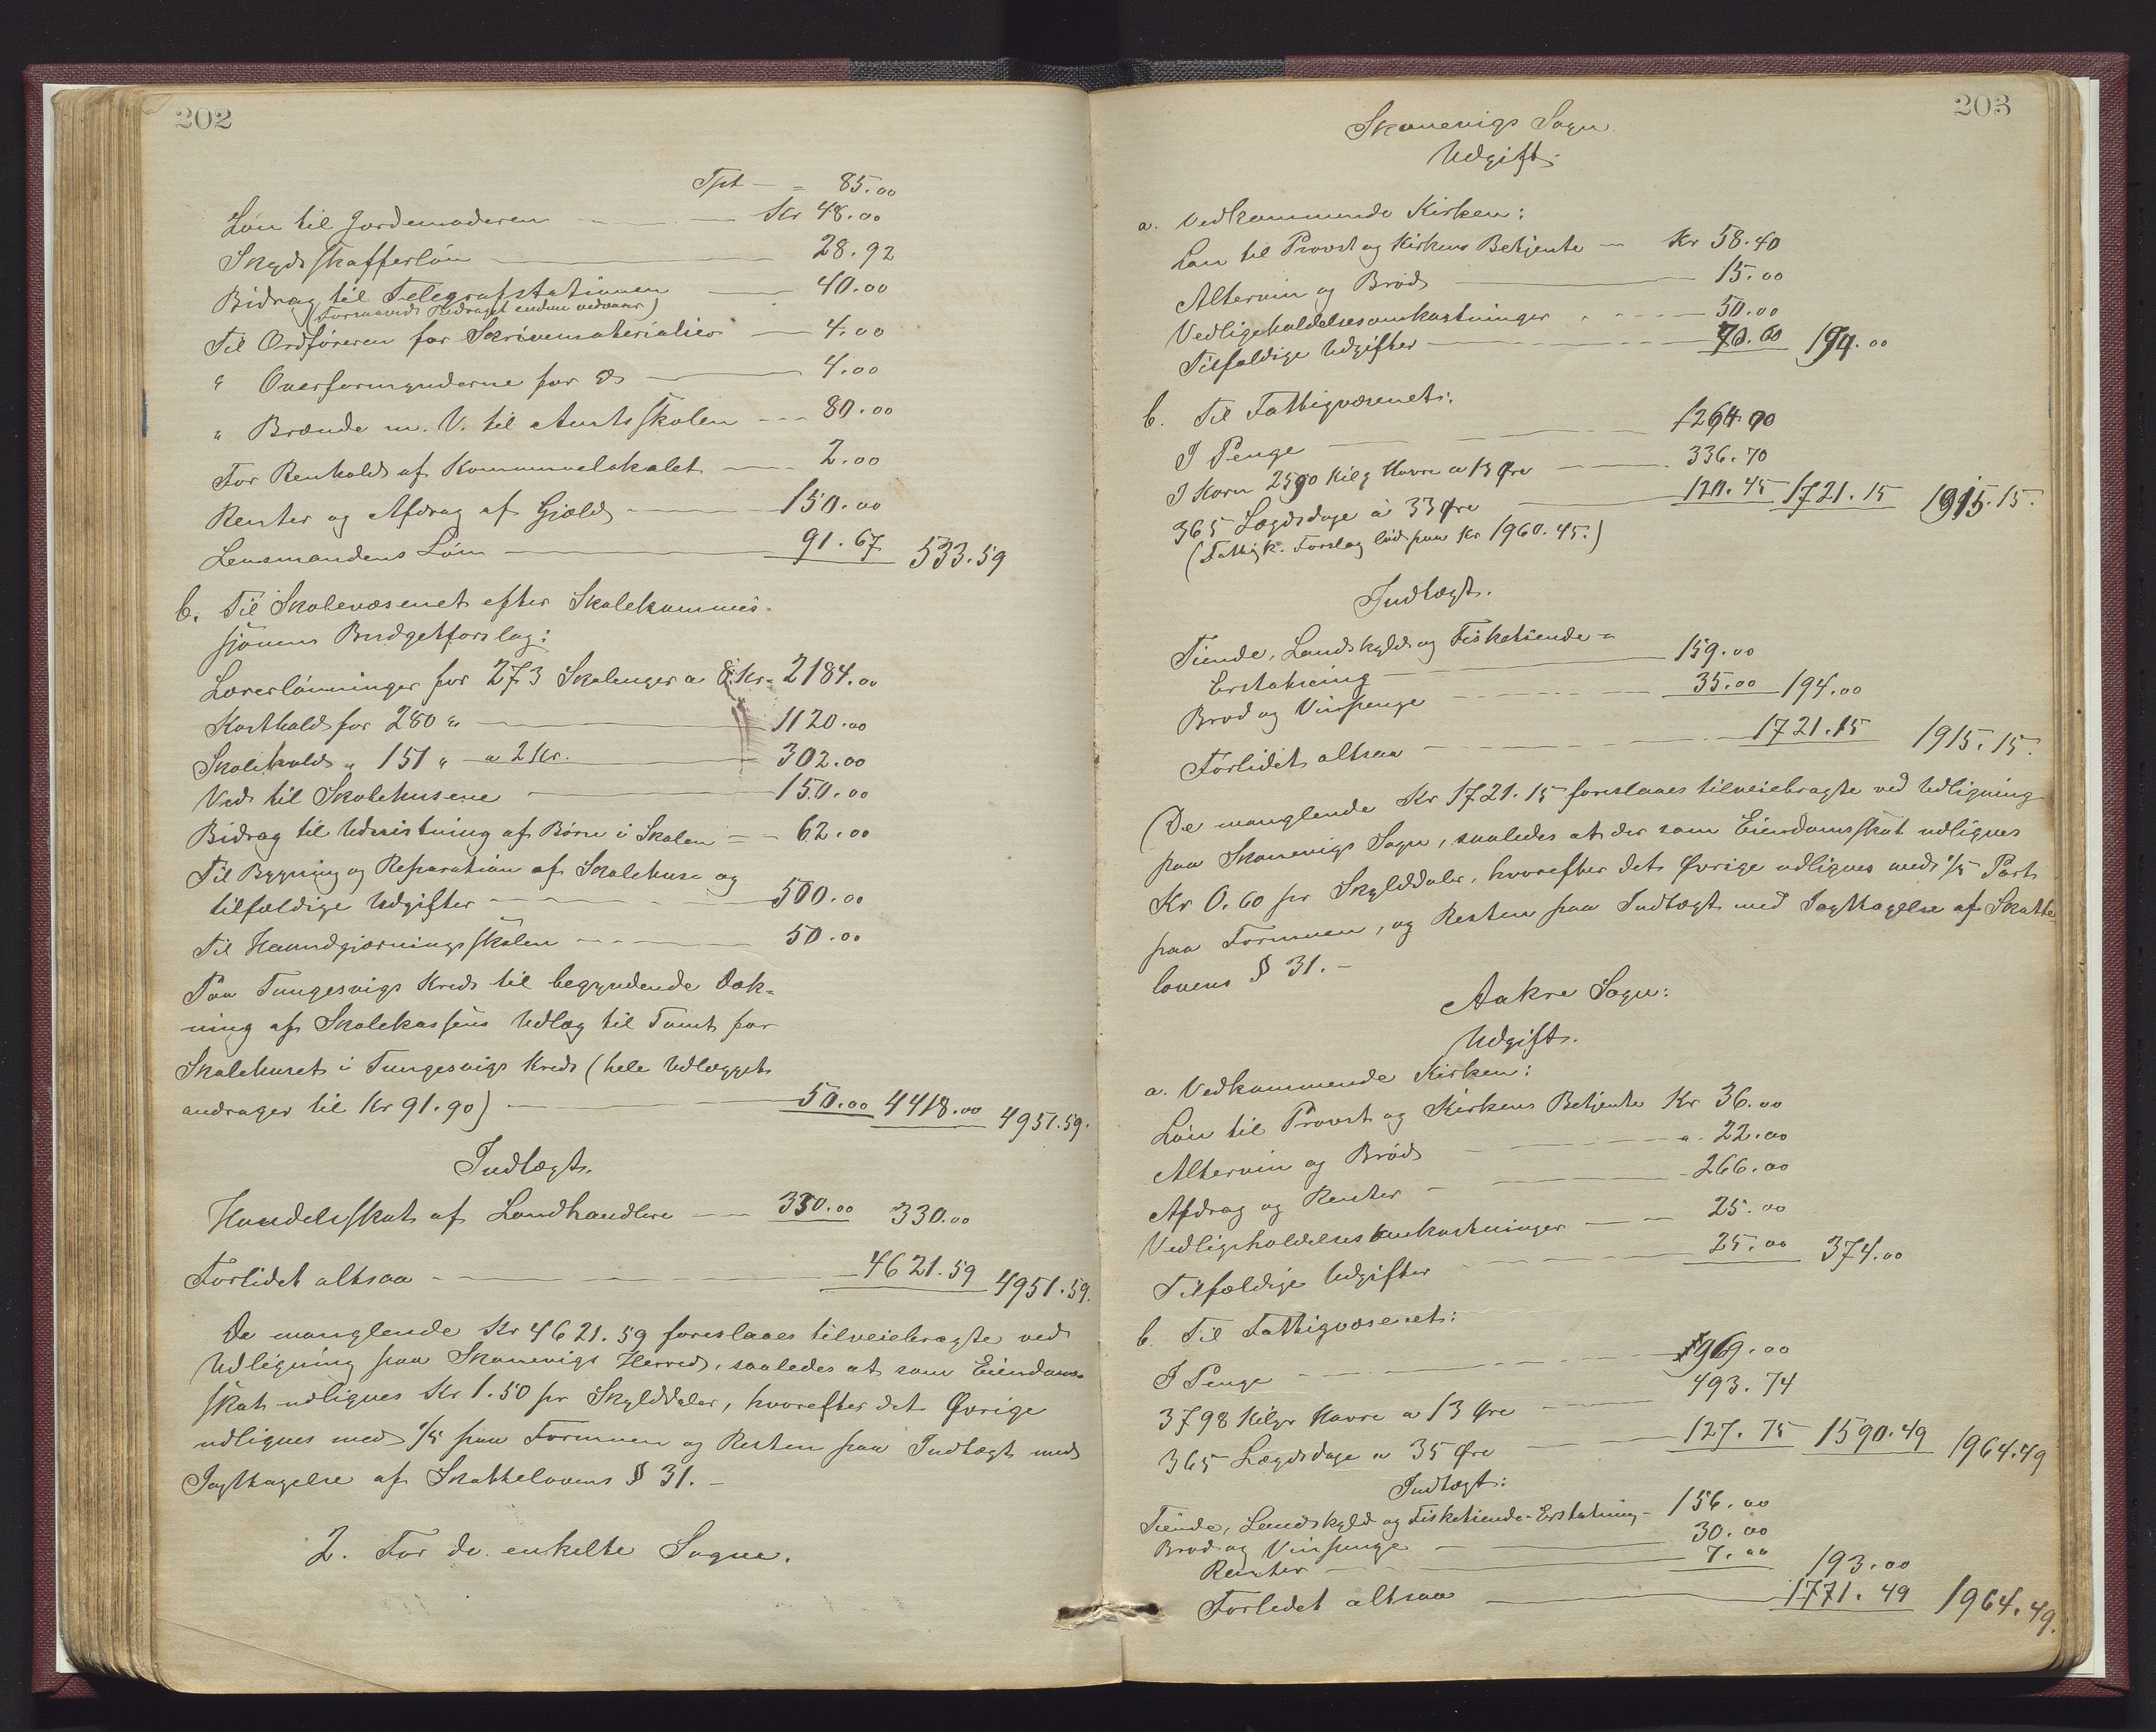 202
Tpt — = 85.00
Løn til Jordemoderen — Kr 48.00
Skydsskafferløn — 28.92
Bidrag til Telegrafstationen — 40.00
(forsaavidt Bidraget endnu vedvarer)
Til Ordføreren for Skrivematerialier — 4.00
" Overformynderne for do — 4.00
" Brænde m. V. til Amtsskolen — 80.00
For Renhold af Kommunelokalet — 2.00
Renter og Afdrag af Gjæld — 150.00
Lensmandens Løn — 91.67 533.59
b. Til Skolevæsenet efter Skolekommis-
sjonens Budgetforslag:
Lærerlønninger for 273 Skoleuger a 8 Kr = 2184.00
Kosthold for 280 " — 1120.00
Skolehold " 151 " a 2 Kr. — 302.00
Ved til Skolehusene — 150.00
Bidrag til Udrustning af Børn i Skolen = - 62.00
Til Bygning og Reparation af Skolehuse og
tilfældige Udgifter — 500.00
Til Haandgjerningsskolen — 50.00
Paa Tungesvigs Kreds til begyndende Dæk-
ning af Skolekassens Udlæg til Tomt for
Skolehuset i Tungesvigs Kreds (hele Udlægget
andrager til Kr 91.90) — 50.00 4418.00 4951.59.
Indtægt.
Handelsskat af Landhandlere — 330.00 330.00
Forlidet altsaa — 4621.59 4951.59.
De manglende Kr 4621.59 foreslaaes tilveiebragte ved
Udligning paa Skonevigs Herred, saaledes at som Eiendoms-
skat udlignes Kr 1.50 pr Skylddaler, hvorefter det Øvrige
udlignes med 1/5 paa Formuen og Resten paa Indtægt med
Iagttagelse af Skattelovens § 31. —
2. For de enkelte Sogne.
203
Skonevigs Sogn.
Udgift.
a. Vedkommende Kirken:
Løn til Provst og Kirkens Betjente — Kr 58.40
Altervin og Brød — 15.00
Vedligeholdelsesomkostninger — 50.00
Tilfældige Udgifter — 70.60 194.00
b. Til Fattigvæsenet:
I Penge — 1264.00
I Korn 2590 Kilg Havre a 13 Øre — 336.70
365 Lægdsdage á 33 Øre — 120.45 1721.15 1915.15.
(Fattigk. Forslag lød paa Kr 1960.45.)
Indtægt.
Tiende, Landskyld og Fisketiende-
Erstatning — 159.00
Brød og Vinpenge — 35.00 194.00
Forlidet altsaa — 1721.15 1915.15.
(De manglende Kr 1721.15 foreslaaes tilveiebragte ved Udligning
paa Skonevigs Sogn, saaledes at der som Eiendomsskat udlignes
Kr 0.60 pr Skylddaler, hvorefter det Øvrige udlignes med 1/5 Part
paa Formuen, og Resten paa Indtægt med Iagttagelse af Skatte
lovens § 31. —
Aakre Sogn:
Udgift.
a. Vedkommende Kirken:
Løn til Provst og Kirkens Betjente Kr 36.00
Altervin og Brød — " 22.00
Afdrag og Renter — 266.00
Vedligeholdelsesomkostninger — 25.00
Tilfældige Udgifter — 25.00 374.00
b. Til Fattigvæsenet:
I Penge — 969.00
3798 Kilgr Havre a 13 Øre — 493.74
365 Lægdsdage a 35 Øre — 127.75 1590.49 1964.49
Indtægt:
Tiende, Landskyld og Fisketiende-Erstatning — 156.00
Brød og Vinpenge — 30.00
Renter — 7.00 193.00
Forlidet altsaa — 1771.49 1964.49.